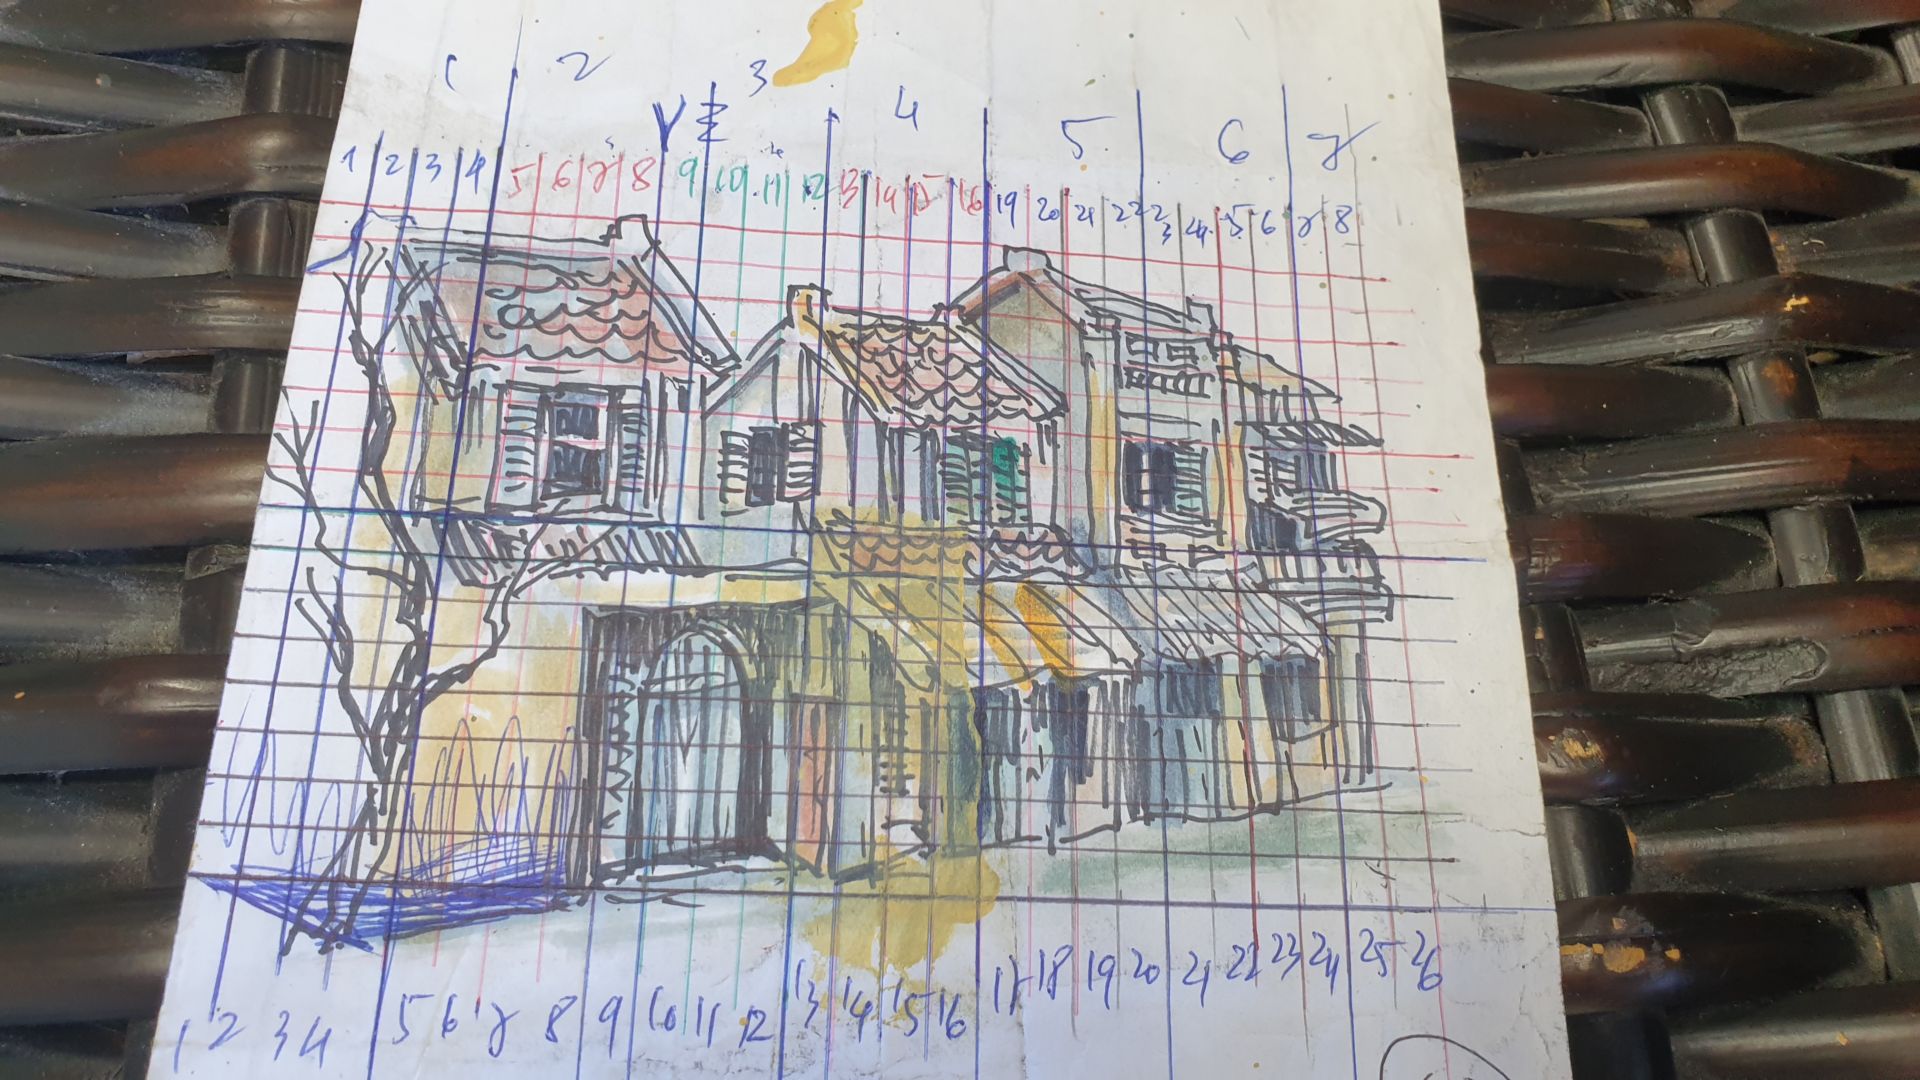 1 2 3 4 5 6 7
1 2 3 4 5 6 7 8 9 10 11 12 13 14 15 16 19 20 21 22 23 24 5 6 7 8
1 2 3 4 5 6 7 8 9 10 11 12 13 14 15 16 17 18 19 20 21 22 23 24 25 26